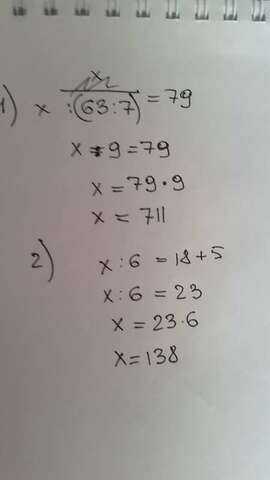 1) x :(63:7) = 79
x : 9 = 79
x = 79·9
x = 711
2) x : 6 = 18+5
x : 6 = 23
x = 23·6
x = 138